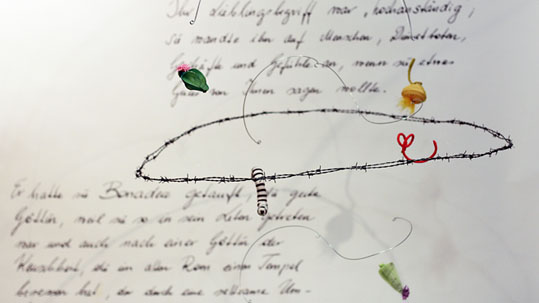 Ihr Lieblingsbegriff war „hochanständig",
sie wandte ihn auf Menschen, Dienstboten,
Geschäfte und Gefühle an, wenn sie etwas
Gutes von ihnen sagen wollte.
Er hatte sie Bonadea getauft, die gute
Göttin, weil sie so in sein Leben getreten
war und auch nach einer Göttin der
Keuschheit, die im alten Rom einen Tempel
besessen hat, der durch eine seltsame Um-